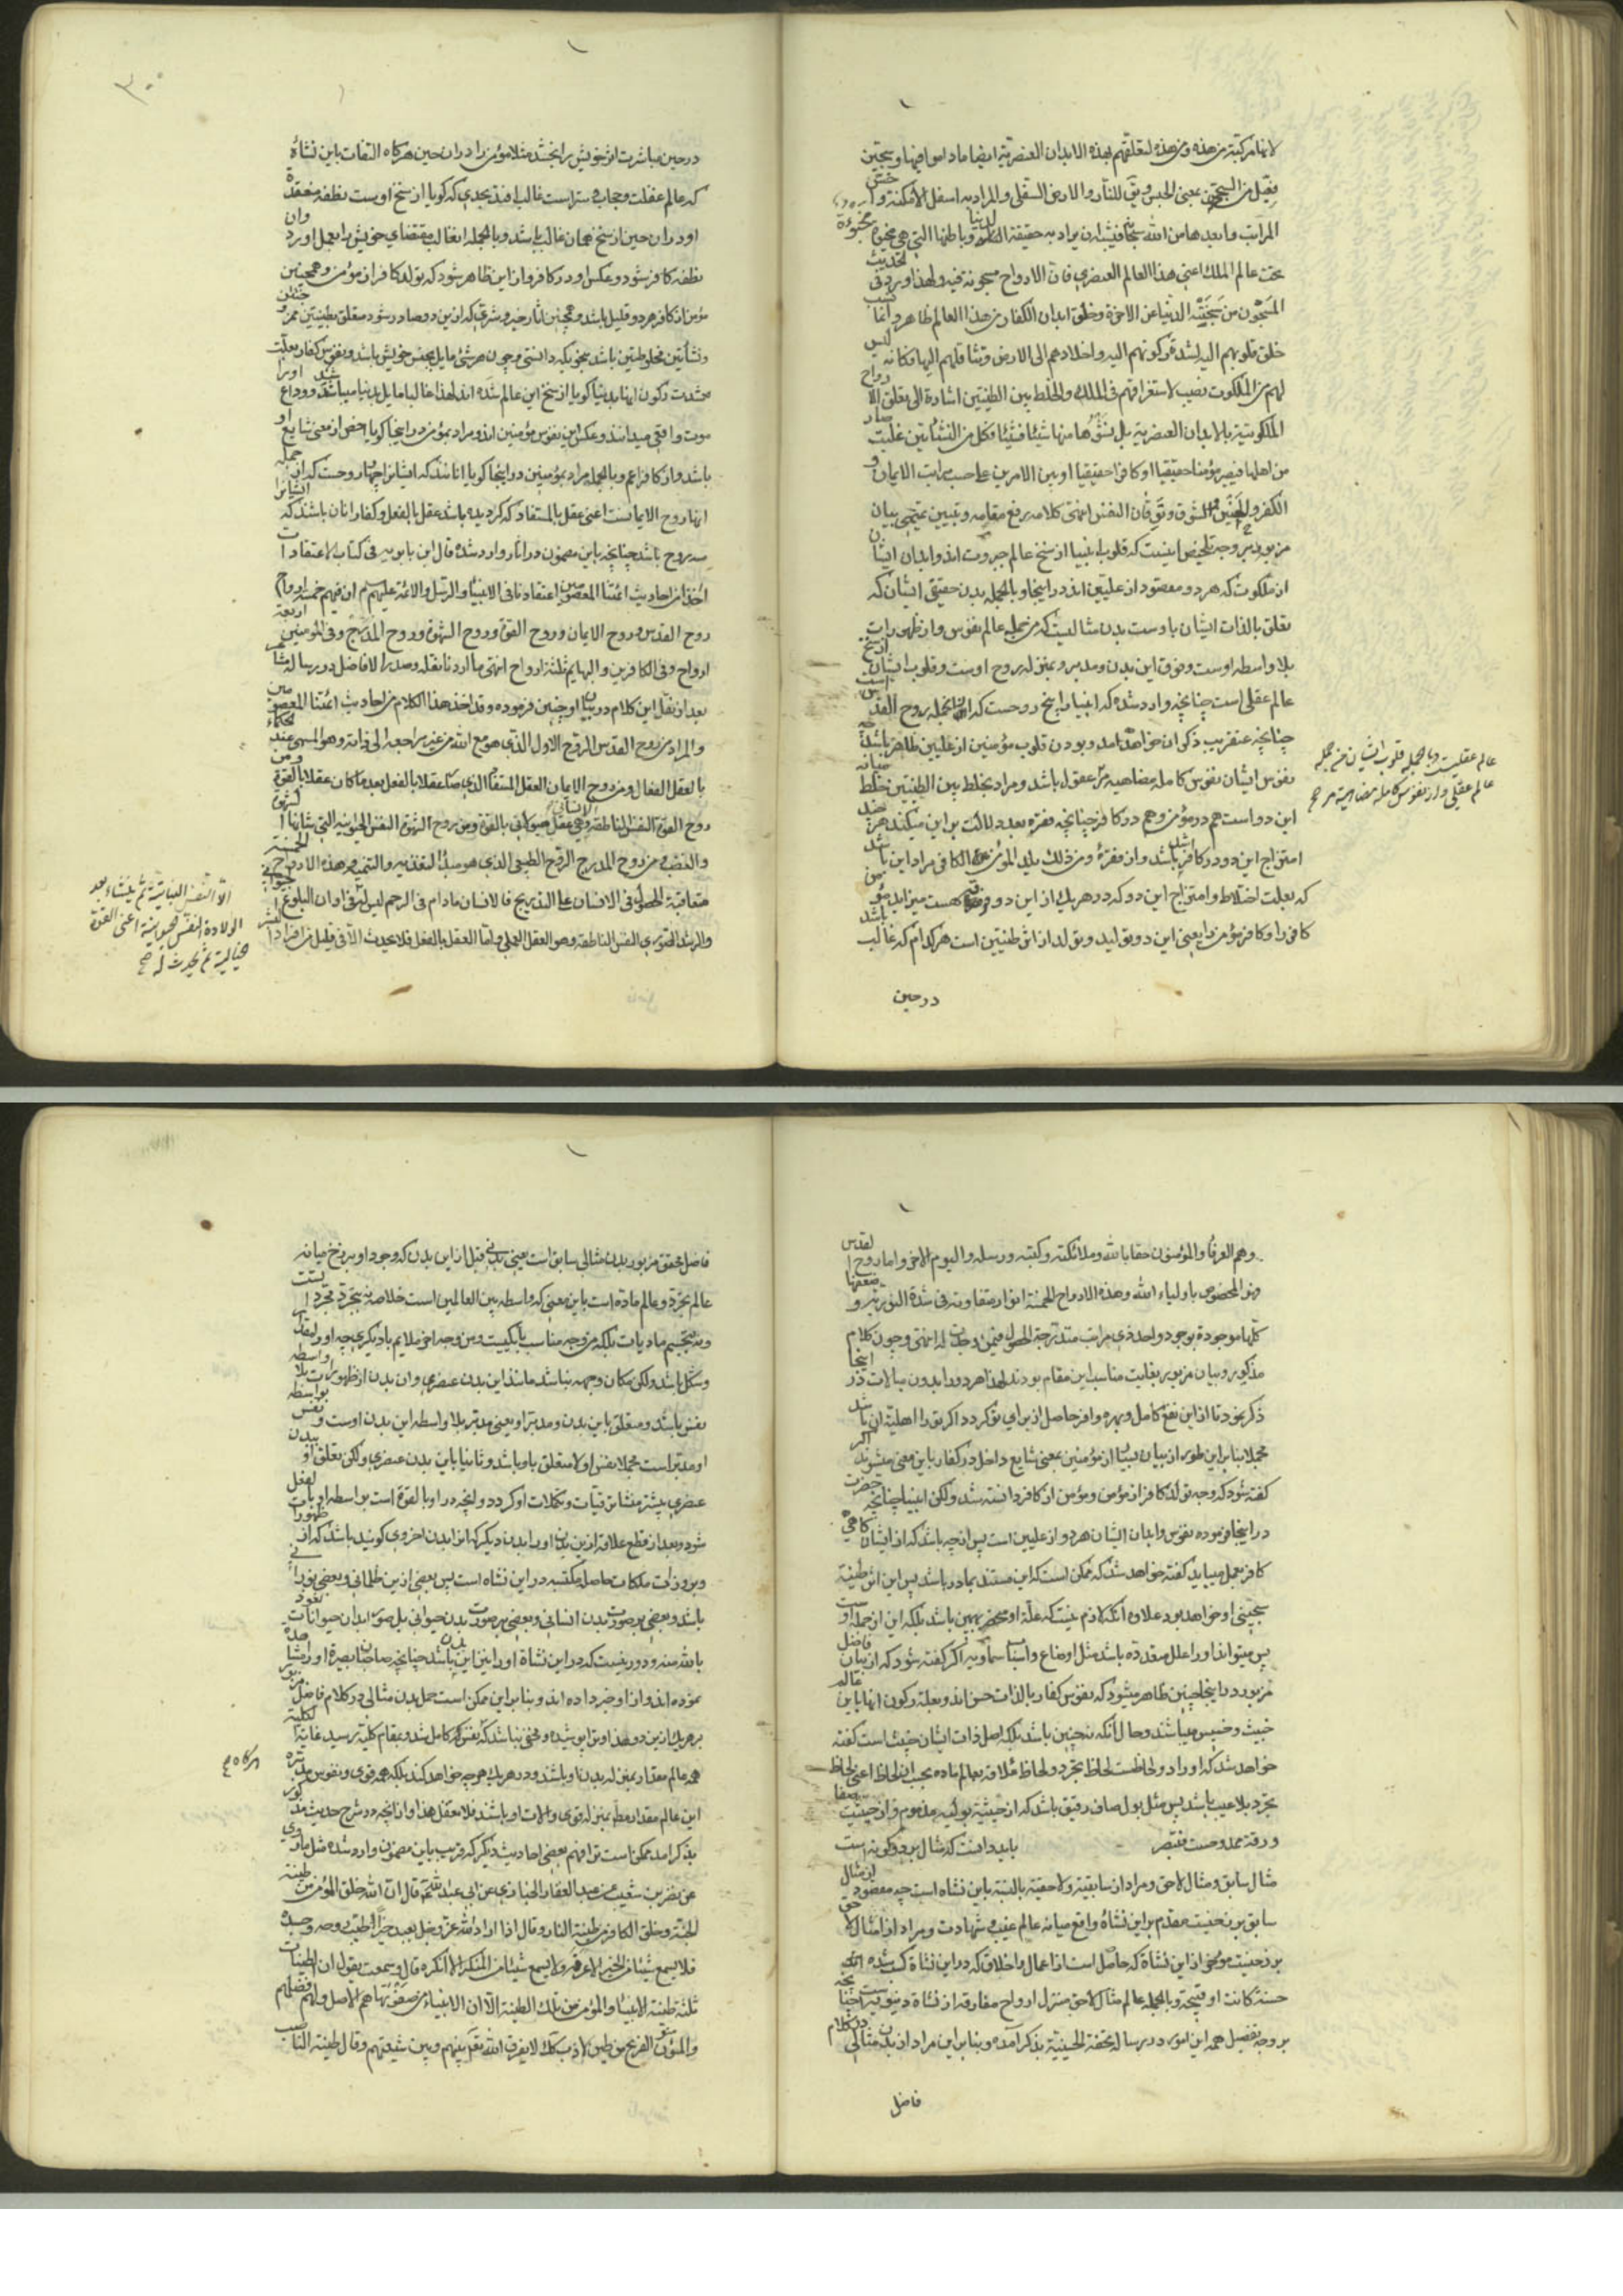 لانها مركبة من هذه ومن هذه لتعلقهم بهذه الابدان العنصرية ايضا ما داموا فيها وسجين
فعيل من السجن بمعنى الحبس ويق للنار والارض السفلى والمراد به اسفل الامكنة واخس
المراتب وابعدها من الله سبحانه فيشبه ان يراد به حقيقة الدنيا وباطنها التي هي مخبوءة
تحت عالم الملك اعني هذا العالم العنصري فان الارواح مسجونة فيه ولهذا ورد في الحديث
المسجون من سجنته الدنيا عن الاخرة وخلق ابدان الكفار من هذا العالم ظاهر وانما نسب
خلق قلوبهم اليه لشدة ركونهم اليه واخلادهم الى الارض وتثاقلهم اليها فكانه ليس
لهم من الملكوت نصيب لاستغراقهم في الملك والخلط بين الطينتين اشارة الى تعلق الارواح
الملكوتية بالابدان العنصرية بل نشوها منها شيئا فشيئا فكل من النشاتين غلبت صار
من اهلها فيصير مؤمنا حقيقيا او كافرا حقيقيا او بين الامرين على حسب مراتب الايمان و
الكفر والحنين الشوق وتوقان النفس انتهى كلامه رفع مقامه وتبيين بيان
مزبور بر وجه تلخيص اينست كه قلوب انبيا از سنخ عالم جبروت اند وابدان ايشان
از ملكوت كه هر دو مقصود از عليين اند در اينجا وبالجمله بدن حقيقي ايشان كه
تعلق بالذات ايشان باوست بدن مثاليست كه من جمله عالم نفوس واز ظهورات
بلا واسطه اوست وفوق اين بدن ومدبر وبمنزله روح اوست وقلوب ايشان از سنخ
عالم عقلي است چنانچه وارد شده كه انبيا را پنج روحست كه از انجمله روح القدس است
چنانچه عنقريب ذكر ان خواهد امد وبودن قلوب مؤمنين از عليين ظاهر باشد چه
نفوس ايشان نفوس كامله مضاهيه عقول باشد ومراد بخلط بين الطينتين خلط ميانه
اين دو است هم در مؤمن وهم در كافر چنانچه فقره بعد دلالت بر اين ميكند هرچند
امتزاج اين دو در كافر اشد باشد واز فقره ومن ذلك يلد المؤمن الكافر مراد اين باشد
كه بعلت اختلاط وامتزاج اين دو كه در هر يك از اين دو فرقه هست ميزايد مؤمن
كافر را وكافر مؤمن را يعني اين دو توليد وتولد از اثر طينتين است هر كدام كه غالب باشد
در حين
عالم عقليست وبالجمله قلوب ايشان من جمله
عالم عقلي واز نفوس كامله مضاهيه صح
٣٠٠
در حين مباشرت اثر خويش را بخشد مثلا مؤمن را در ان حين هر گاه التفات باين نشاة
كه عالم غفلت وحجاب وستر است غالب افتد بحدي كه گويا از سنخ اوست نطفه منعقده
او در ان حين از سنخ همان غالب باشد وبالجمله انغالب مقتضاي خويش را بعمل اورد وان
نطفه كافر شود وعكس او در كافر واز اين ظاهر شود كه تولد كافر از مؤمن وهمچنين
مؤمن از كافر هر دو قليل باشد وهمچنين اثار خير وشر كه از اين دو صادر شود متعلق بطينتين ممزوجتين
ونشاتين مخلوطتين باشد بنحويكه دانستي وچون هر شئ مايل بجنس خويش باشد ونفوس كفار بعلت
شدت ركون انها بدنيا گويا از سنخ اين عالم شده اند لهذا غالبا مايل بدنيا ميباشند ووداع او را
موت واقعي ميدانند وعكس اين نفوس مؤمنين اند ومراد بمؤمن در اينجا گويا اخص از معني شايع او
باشد واز كافر اعم وبالجمله مراد بمؤمنين در اينجا گويا انانند كه ايشانرا چهار روحست كه از جمله
انها روح الايمانست اعني عقل بالمستفاد كه گرديده باشد عقل بالفعل وكفار انان باشند كه ايشانرا
سه روح باشد چنانچه باين مضمون در اثار وارد شده قال ابن بابويه في كتاب الاعتقادات
اخذا من احاديث ائمتنا المعصومين اعتقادنا في الانبياء والرسل والائمة عليهم السلم ان فيهم خمسة ارواح
روح القدس وروح الايمان وروح القوة وروح الشهوة وروح المدرج وفي المؤمنين اربعة
ارواح وفي الكافرين والبهايم ثلثة ارواح انتهى ما اردنا نقله وصدر الافاضل در رساله
بعد از نقل اين كلام در بيان او چنين فرموده وقد اخذ هذا الكلام من احاديث ائمتنا المعصومين
والمراد من روح القدس الروح الاول الذي هو مع الله من غير مراجعة الى ذاته وهو المسمى عند الحكماء
بالعقل الفعال ومن روح الايمان العقل المستفاد الذي صار عقلا بالفعل بعد ما كان عقلا بالقوة ومن
روح القوة النفس الناطقة الانساني وهي عقل هيولاني بالقوة ومن روح الشهوة النفس الحيوانية التي شانها الشهوة
والغضب ومن روح المدرج الروح الطبيعي الذي هو مبدأ التغذيه والتنميه وهذه الارواح الخمسة
متعاقبة الحصول في الانسان على التدريج فالانسان ما دام في الرحم ليس له
والرشد الصوري النفس الناطقة وهو العقل العملي واما العقل بالفعل فلا يحدث الا في قليل من افراد البشر
الا النفس النباتية ثم ينشاء بعد
الولادة النفس الحيوانية اعني القوة
الخيالية ثم يحدث له صح
وهم العرفاء والمؤمنون حقا بالله وملائكته وكتبه ورسله واليوم الاخر واما روح القدس
فهو المخصوص باولياء الله وهذه الارواح الخمسة انوار متفاوتة في شدة النورية وضعفها
كلها موجودة بوجود واحد ذي مراتب متدرجة الحصول فيمن وجدت له انتهى وچون كلام
مذكور وبيان مزبور بغايت مناسب اين مقام بودند لهذا هر دو را بدون مبالات در اينجا
ذكر نمود تا از اين نفع كامل وبهره وافر حاصل از براي تو گردد اگر تو را اهليت ان باشد
مجملا بنا بر اين طور از بيان بيشتر از مؤمنين بمعني شايع داخل در كفار باين معني ميشوند اگر
گفته شود كه وجه تولد كافر از مؤمن ومؤمن از كافر دانسته شد ولكن انبيا چنانچه حضرت
در اينجا فرموده نفوس وابدان ايشان هر دو از عليين است پس از چه باشد كه از ايشان گاهي
كافر بعمل ميايد گفته خواهد شد كه ممكن است كه اين مستند بمادر باشد پس اين اثر طينة
سجيني او خواهد بود علاوه انكه لازم نيست كه علة او منحصر بهمين باشد بلكه اين از جمله اوست
پس ميتواند او را علل متعدده باشد مثل اوضاع واسباب سماويه اگر گفته شود كه از بيان فاضل
مزبور در اينجا چنين ظاهر ميشود كه نفوس كفار بالذات حسن اند وبعلة ركون انها باين عالم
خبيث وخسيس ميباشند وحال انكه نه چنين باشد بلكه اصل ذات ايشان خبيث است گفته
خواهد شد كه او را دو لحاظست لحاظ تجرد ولحاظ علاقه بعالم ماده بحسب ان لحاظ اعني لحاظ
تجرد بلا عيب باشد پس مثل بول صاف رقيق باشد كه از حيثية بوليه مذموم واز حيثيت صفا
ورقة ممدوحست فتبصر بايد دانست كه مثال بر دو گونه است
مثال سابق ومثال لاحق ومراد از سابقية ولاحقية بالنسبة باين نشاه است چه مقصود از مثال
سابق برزخيست مقدم بر اين نشاة واقع ميانه عالم غيب وشهادت ومراد از مثال لاحق
برزخيست مؤخر از اين نشاة كه حاصل است از اعمال واخلاق كه در اين نشاة كسب شده
حسنة كانت او قبيحة وبالجمله عالم مثال لاحق منزل ارواح مفارقه از نشاة دنيويه است چنانچه
بر وجه تفصيل همه اين امور در رساله تحفة الحسينية بذكر آمده وبنا بر اين مراد از بدن مثالي در كلام
فاضل
فاضل محقق مزبور بدن مثالي سابق است يعني بدني قبل از اين بدن كه وجود او برزخ ميانه
عالم تجرد وعالم ماده است باين معني كه واسطه بين العالمين است خلاصه نه بتجرد مجرداتست
ونه بتجسم ماديات بلكه من وجه مناسب با يكيست ومن وجه اخر ملايم با ديگري چه او را مقدار
وشكل باشد ولكن مكان وجهه نباشد مانند اين بدن عنصري وان بدن از ظهورات بلا واسطه
نفس باشد ومتعلق باين بدن ومدبر او يعني مدبر بلا واسطه اين بدن اوست ونفس بواسطه
او مدبر است مجملا نفس اولا متعلق باو باشد وثانيا باين بدن عنصري ولكن تعلق او ببدن
عنصري بيشتر منشا ترقيات وتكملات او گردد وانچه در او بالقوة است بواسطه او بالفعل
شود وبعد از قطع علاقه از اين بدن او را بدن ديگر كه انرا بدن اخروي گويند باشد كه از ظهورات
وبروزات ملكات حاصله مكتسبه در اين نشاه است پس بعضي از اين ظلماني وبعضي نوراني
باشد وبعضي بر صورت بدن انساني وبعضي بر صورت بدن حيواني بل صور ابدان حيوانات نعوذ
بالله منه ودور نيست كه در اين نشاة او را نيز اين بدن باشد چنانچه صاحبان بصيرة او را مشاهده
نموده اند واز او خبر داده اند وبنا بر اين ممكن است حمل بدن مثالي در كلام فاضل مزبور
بر هر يك از اين دو ومخفي نباشد كه نفس كه كامل شد وبمقام كليه رسيد غاية الكلية
همه عالم مقدار بمنزله بدن او باشد ودر هر يك هر چه خواهد كند بلكه همه قوي ونفوس مدبره
اين عالم مقدار مط بمنزله قوي والات او باشند فلا تغفل هذا واز انچه در شرح حديث مذكور
بذكر امد ممكن است ترا فهم بعضي احاديث ديگر كه قريب باين مضمون وارد شده مثل ما روي
عن نضر بن شعيب عن عبد الغفار الجازي عن ابي عبد الله ع قال ان الله خلق المؤمن من طينة
الجنة وخلق الكافر من طينة النار وقال اذا اراد الله عز وجل بعبد خيرا طيب روحه وجسده
فلا يسمع شيئا من الخير الا عرفه ولا يسمع شيئا من المنكر الا انكره قال وسمعته يقول ان الطينات
ثلثة طينة الانبياء والمؤمن من تلك الطينة الا ان الانبياء من صفوتها هم الاصل ولهم فضلهم
والمؤمن الفرع من طين لازب كك لا يفرق الله بينهم وبين شيعتهم وقال طينة الناصب
هر گاه صح